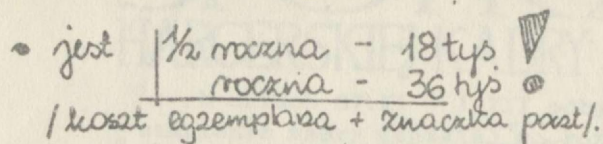 • jest | ½ roczna - 18 tyś !
roczna - 36 tyś
/ koszt egzemplarza + znaczka poczt/.